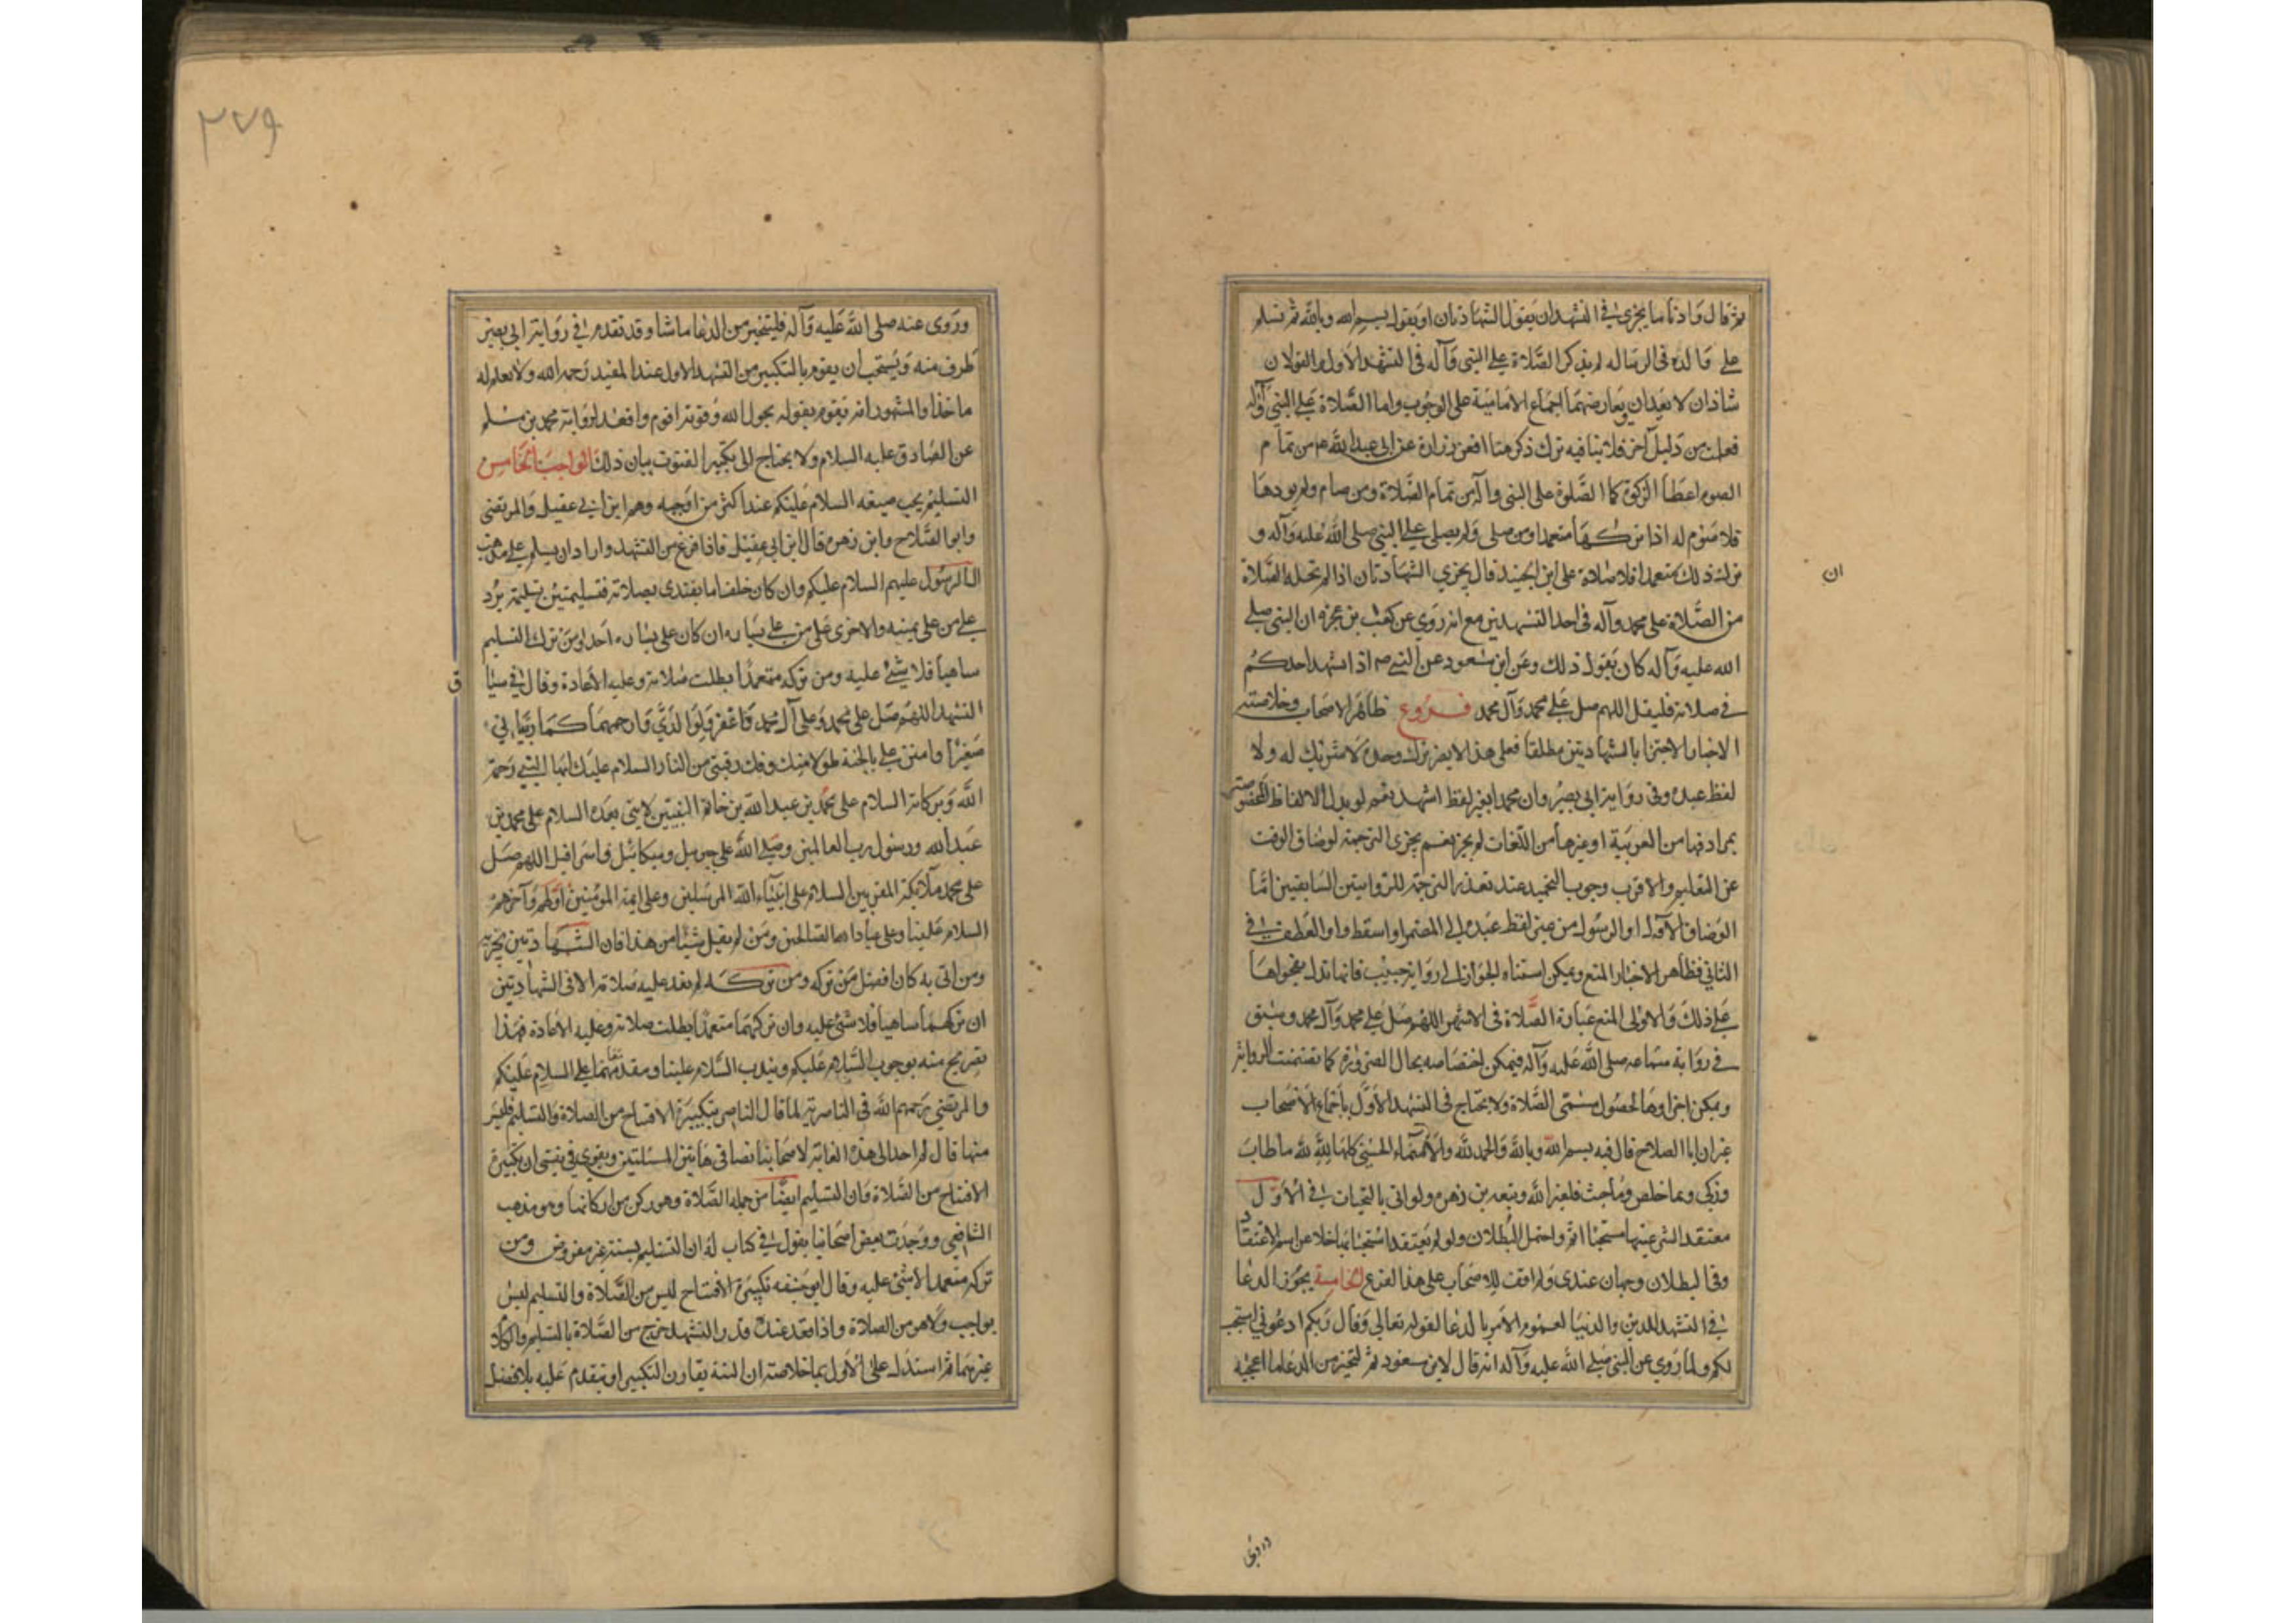 ثم قال وادنا ما يجزى في التشهد ان يقول الشهادتان او يقول بسم الله وبالله ثم تسلم
على والده فى الرساله لم يذكر الصلاة على النبى وآله فى التشهد الاول والقولان
شاذان لا يعدان ويعارضهما اجماع الامامية على الوجوب واما الصلاة على النبي وآله
فعلت من دليل آخر فلا ينافيه ترك ذكر هنا افعن زرارة عن ابى عبد الله عم من تمام
الصوم اعطا الزكوة كما الصلوة على النبى وآله من تمام الصلاة ومن صام ولم يودها
فلا صوم له اذا تركها متعمدا ومن صلى ولم يصلى على النبي صلى الله عليه وآله و
ترك ذلك متعمدا فلا صلاة على ابن الجنيد قال يجزي الشهادتان اذا لم تخله الصلاة
ان
من الصلاة على محمد وآله فى احد التشهدين مع انه روي عن كعب بن عجزه ان النبى صلى
الله عليه وآله كان يقول ذلك وعن ابن مسعود عن النبي صم اذا تشهد احدكم
في صلاته فليقل اللهم صل على محمد وآل محمد فروع ظاهر الاصحاب وخلاصته
الاخبار الاجتزا بالشهادتين مطلقا فعلى هذا لا يضر ترك وحده لا شريك له ولا
لفظ عبده وفى رواية ابى بصير وان محمدا بغير لفظ اشهد نعم لو بدل الالفاظ
بمرادفها من العربية او غيرها من اللغات لم يجز نعم يجزى الترجمة لو ضاق الوقت
عن التعلم والاقرب وجوب التحميد عند تعذر الترجمة للروايتين السابقتين اما
لو اضاف الآل او الرسول من غير لفظ عبده الى المضمر او اسقط واو العطف في
الثاني فظاهر الاخبار المنع ويمكن استناد الجواز الى رواية حبيب فانها تدل بفحواها
على ذلك والاولى المنع عبارة الصلاة فى الاشهر اللهم صل على محمد وآل محمد وسبق
في رواية سماعه صلى الله عليه وآله فيمكن اختصاصه بحال الضرورة كما تضمنت الرواية
ويمكن اجزاوها لحصول مسمى الصلاة ولا يحتاج فى التشهد الاول باجماع الاصحاب
غير ان ابا الصلاح قال فيه بسم الله وبالله والحمد لله والاسماء الحسنى كلها لله لله ما طاب
وزكى ونما خلص وما خبث فلغير الله وتبعه بن زهره ولو اتى بالتحيات في الاول
معتقدا لشرعيتها مستحبا اثم واحتمل البطلان ولو لم يعتقد استحبابها خلا عن اثم الاعتقاد
وفى البطلان وجهان عندى ولم اقف للاصحاب على هذا الفرع الخامسة يجوز الدعا
في التشهد للدين والدنيا لعموم الامر بالدعا لقوله تعالى وقال ربكم ادعوني استجب
لكم ولما روي عن النبى صلى الله عليه وآله انه قال لابن مسعود ثم ليتخير من الدعا ما اعجبه
وروى
٢٧٩
وروى عنه صلى الله عليه وآله فليتخير من الدعا ما شا وقد تقدم في رواية ابي بصير
طرف منه ويستحب ان يقوم بالتكبير من التشهد الاول عند المفيد رحمه الله ولا نعلم له
ماخذا والمشهور انه يقوم بقوله بحول الله وقوته اقوم واقعد لرواية محمد بن مسلم
عن الصادق عليه السلام ولا يحتاج الى تكبير القنوت بيان ذلك الواجب الخامس
التسليم يجب صيغه السلام عليكم عند اكثر من اوجبه وهم ابن ابي عقيل والمرتضى
وابو الصلاح وابن زهره قال ابن ابى عقيل فاذا فرغ من التشهد واراد ان يسلم على مذهب
آل الرسول عليهم السلام عليكم وان كان خلف امام يقتدى بصلاته فتسليمتين تسليمة يرد
على من على يمينه والاخرى على من على يساره ان كان على يساره احد ومن ترك التسليم
ساهيا فلا شئ عليه ومن تركه متعمدا بطلت صلاته وعليه الاعادة وقال في سيا
ق
التشهد اللهم صل على محمد وعلى آل محمد واغفر ولوالدي وارحمهما كما ربيانى
صغيرا وامنن على بالجنة طولا منك وفك رقبتى من النار السلام عليك ايها النبي ورحمة
الله وبركاته السلام على محمد بن عبد الله بن خاتم النبيين لا نبى بعده السلام على محمد بن
عبد الله ورسول رب العالمين وصلى الله على جبريل وميكائيل واسرافيل اللهم صل
على محمد ملائكة المقربين السلام على انبياء الله المرسلين وعلى ايمة المؤمنين اولهم وآخرهم
السلام علينا وعلى عباد الله الصالحين ومن لم يقل شيئا من هذا فان الشهادتين تجزيه
ومن اتى به كان افضل من تركه ومن تركه لم نعد عليه صلاته الا فى الشهادتين
ان تركهما ساهيا فلا شئ عليه وان تركهما متعمدا بطلت صلاته وعليه الاعادة فهذا
تصريح منه بوجوب السلام عليكم وبندب السلام علينا وبتقدمهما على السلام عليكم
والمرتضى رحمهم الله فى الناصرية لما قال الناصر بتكبيرة الافتتاح من الصلاة والتسليم ليس
منها قال لم اجد الى هذه الغاية لاصحابنا نصا في هاتين المسئلتين ويقوى في نفسى ان تكبيرة
الافتتاح من الصلاة وان التسليم ايضا من جمله الصلاة وهو ركن من اركانها وهو مذهب
الشافعي ووجدت بعض اصحابنا يقول في كتاب له ان التسليم سنة غير مفروض ومن
تركه متعمدا لا شئ عليه وقال ابو حنيفه تكبيرة الافتتاح ليس من الصلاة والتسليم ليس
بواجب ولا هو من الصلاة واذا قعد عنده قدر التشهد خرج من الصلاة بالتسليم والكلام
غيرهما ثم استدل على الاول بما خلاصته ان النية يقارن التكبير او تتقدم عليه بلا فصل